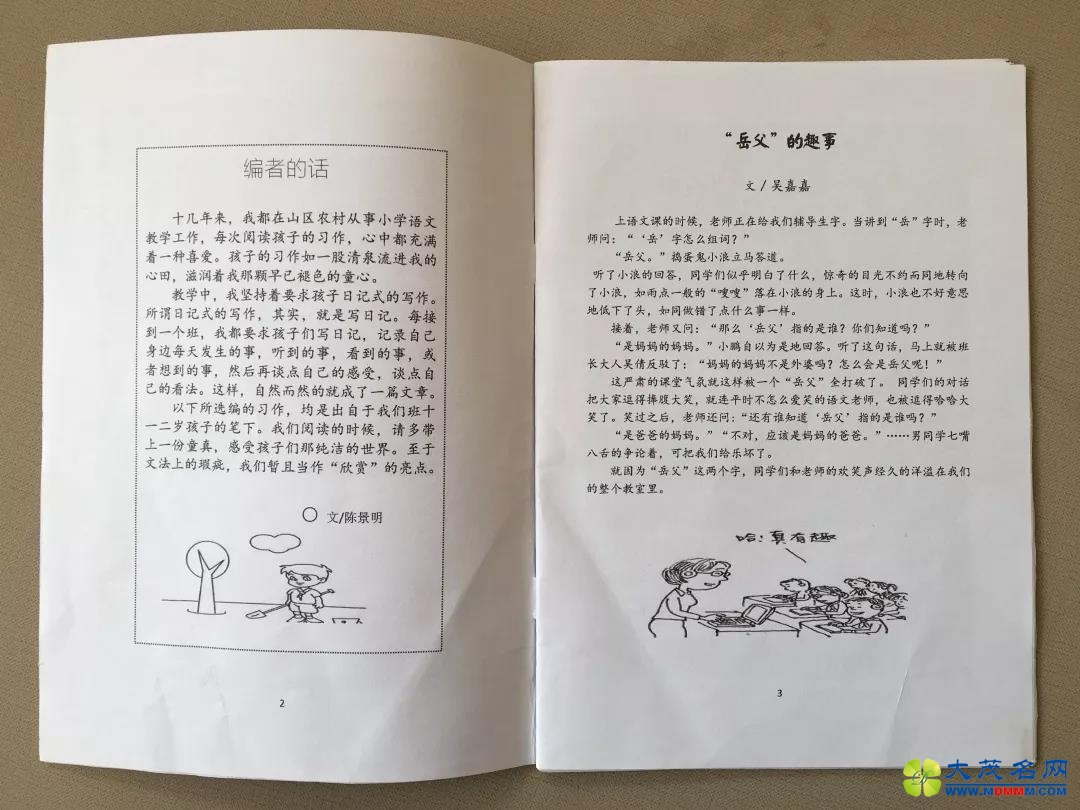 编者的话
十几年来，我都在山区农村从事小学语文
教学工作，每次阅读孩子的习作，心中都充满
着一种喜爱。孩子的习作如一股清泉流进我的
心田，滋润着我那颗早已褪色的童心。
教学中，我坚持着要求孩子日记式的写作。
所谓日记式的写作，其实，就是写日记。每接
到一个班，我都要求孩子们写日记，记录自己
身边每天发生的事，听到的事，看到的事，或
者想到的事，然后再谈点自己的感受，谈点自
己的看法。这样，自然而然的就成了一篇文章。
以下所选编的习作，均是出自于我们班十
一二岁孩子的笔下。我们阅读的时候，请多带
上一份童真，感受孩子们那纯洁的世界。至于
文法上的瑕疵，我们暂且当作“欣赏”的亮点。
○ 文/陈景明
2
“岳父”的趣事
文／吴嘉嘉
上语文课的时候，老师正在给我们辅导生字。当讲到“岳”字时，老
师问：“‘岳’字怎么组词？”
“岳父。”捣蛋鬼小浪立马答道。
听了小浪的回答，同学们似乎明白了什么，惊奇的目光不约而同地转向
了小浪，如雨点一般的“嗖嗖”落在小浪的身上。这时，小浪也不好意思
地低下了头，如同做错了点什么事一样。
接着，老师又问：“那么‘岳父’指的是谁？你们知道吗？”
“是妈妈的妈妈。”小鹏自以为是地回答。听了这句话，马上就被班
长大人吴倩反驳了：“妈妈的妈妈不是外婆吗？怎么会是岳父呢！”
这严肃的课堂气氛就这样被一个“岳父”全打破了。 同学们的对话
把大家逗得捧腹大笑，就连平时不怎么爱笑的语文老师，也被逗得哈哈大
笑了。笑过之后，老师还问：“还有谁知道‘岳父’指的是谁吗？”
“是爸爸的妈妈。”“不对，应该是妈妈的爸爸。”……男同学七嘴
八舌的争论着，可把我们给乐坏了。
就因为“岳父”这两个字，同学们和老师的欢笑声经久的洋溢在我们
的整个教室里。
哈！真有趣
3
大茂名网
WWW.MDMMM.COM